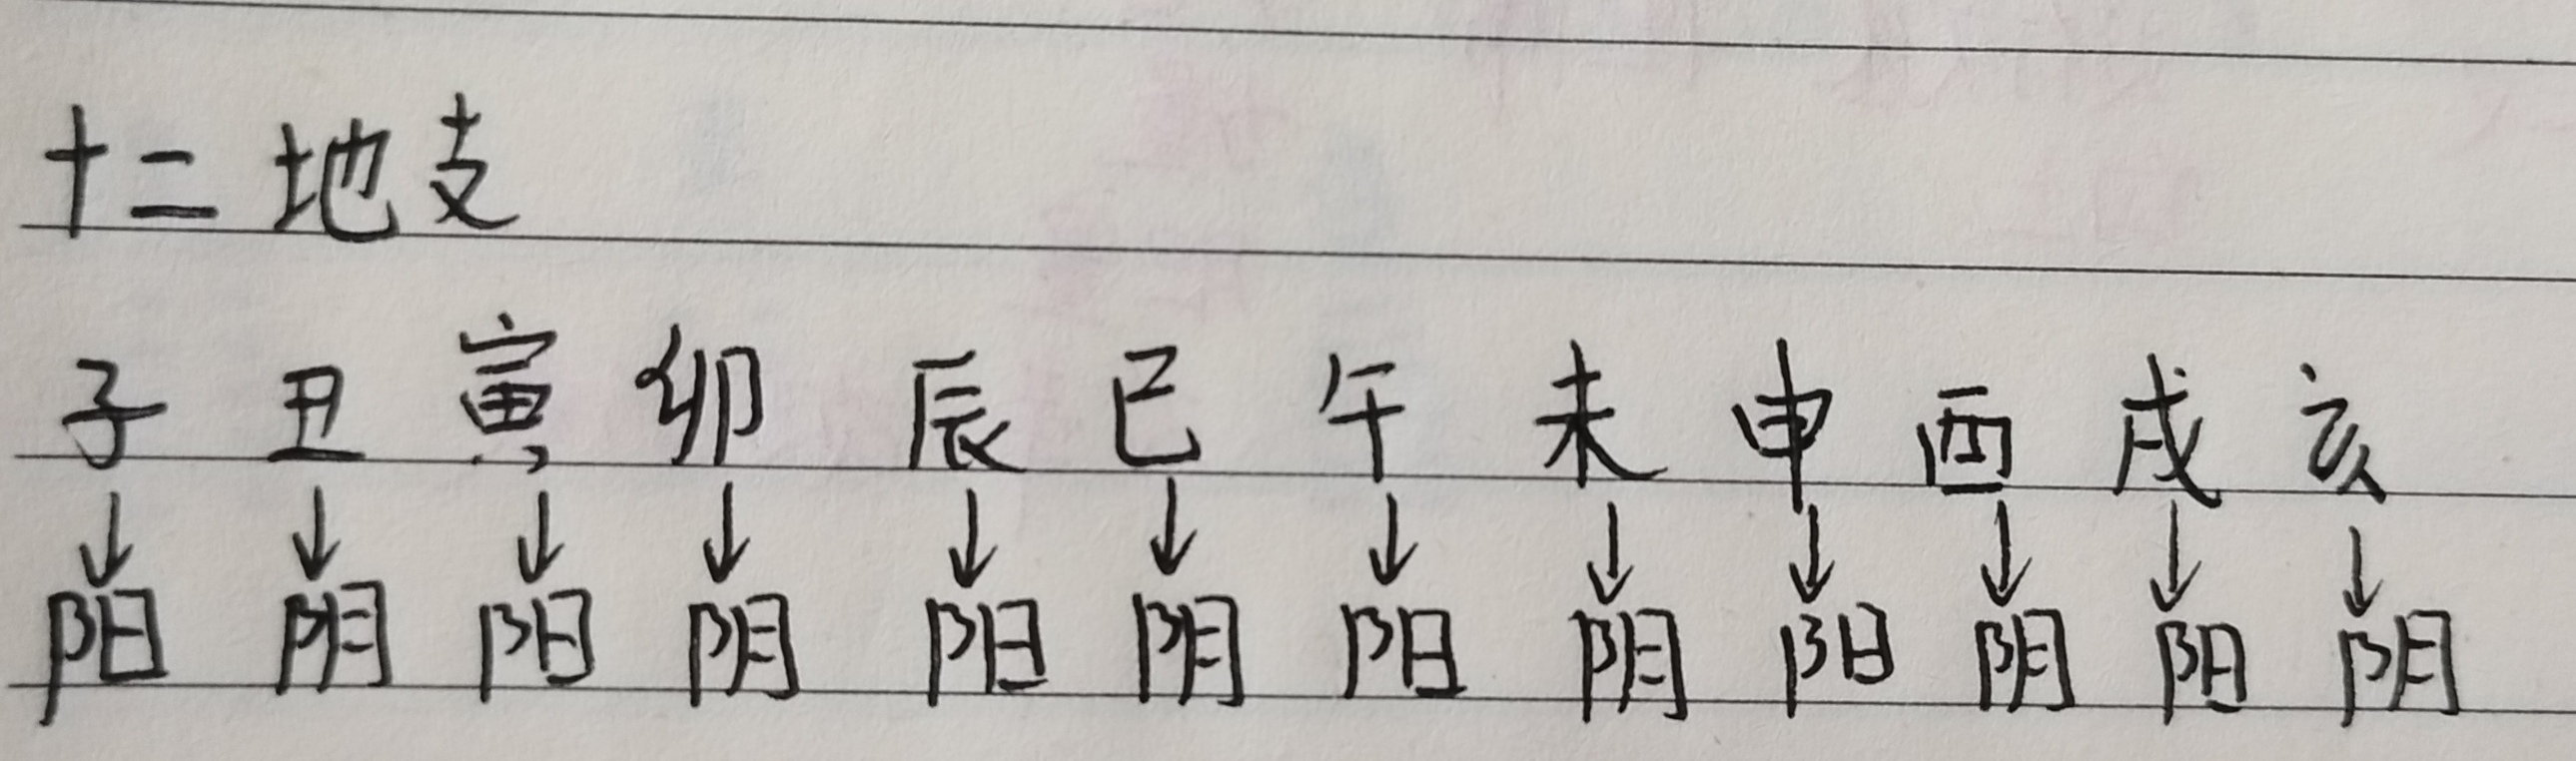 十二地支
子 丑 寅 卯 辰 巳 午 未 申 酉 戌 亥
↓ ↓ ↓ ↓ ↓ ↓ ↓ ↓ ↓ ↓ ↓ ↓
阳 阴 阳 阴 阳 阴 阳 阴 阳 阴 阳 阴